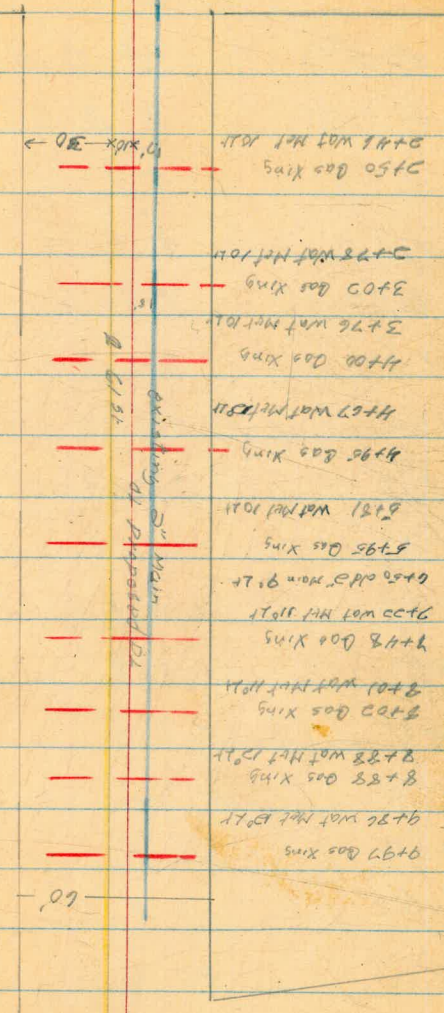 60'
9+97 Gas Xing
9+86 Wat Met 12° Lt
8+88 Gas Xing
8+88 Wat Met 12° Lt
8+02 Gas Xing
8+01 Wat Met 11° Lt
7+48 Gas Xing
7+22 Wat Met 11° Lt
6+50 old 2" Main 9° Lt
5+95 Gas Xing
5+81 Wat Met 10 Lt
4+95 Gas Xing
4+67 Wat Met Lt
4+00 Gas Xing
3+76 Wat Met 10 Lt
3+02 Gas Xing
2+78 Wat Met 10 Lt
2+50 Gas Xing
2+46 Wat Met 10 Lt
30
existing 2" Main
Proposed PL
61 St